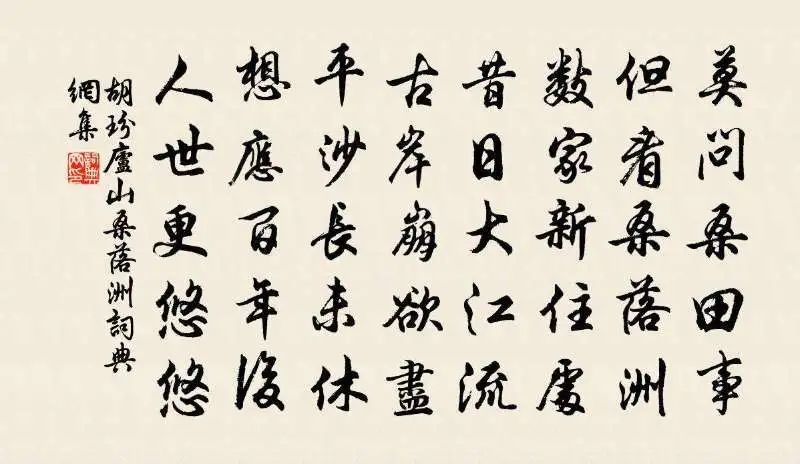 莫問桑田事
但看桑落洲
數家新住處
昔日大江流
古岸崩欲盡
平沙長未休
想應百年後
人世更悠悠
胡玢廬山桑落洲詞典
網集
詞典網